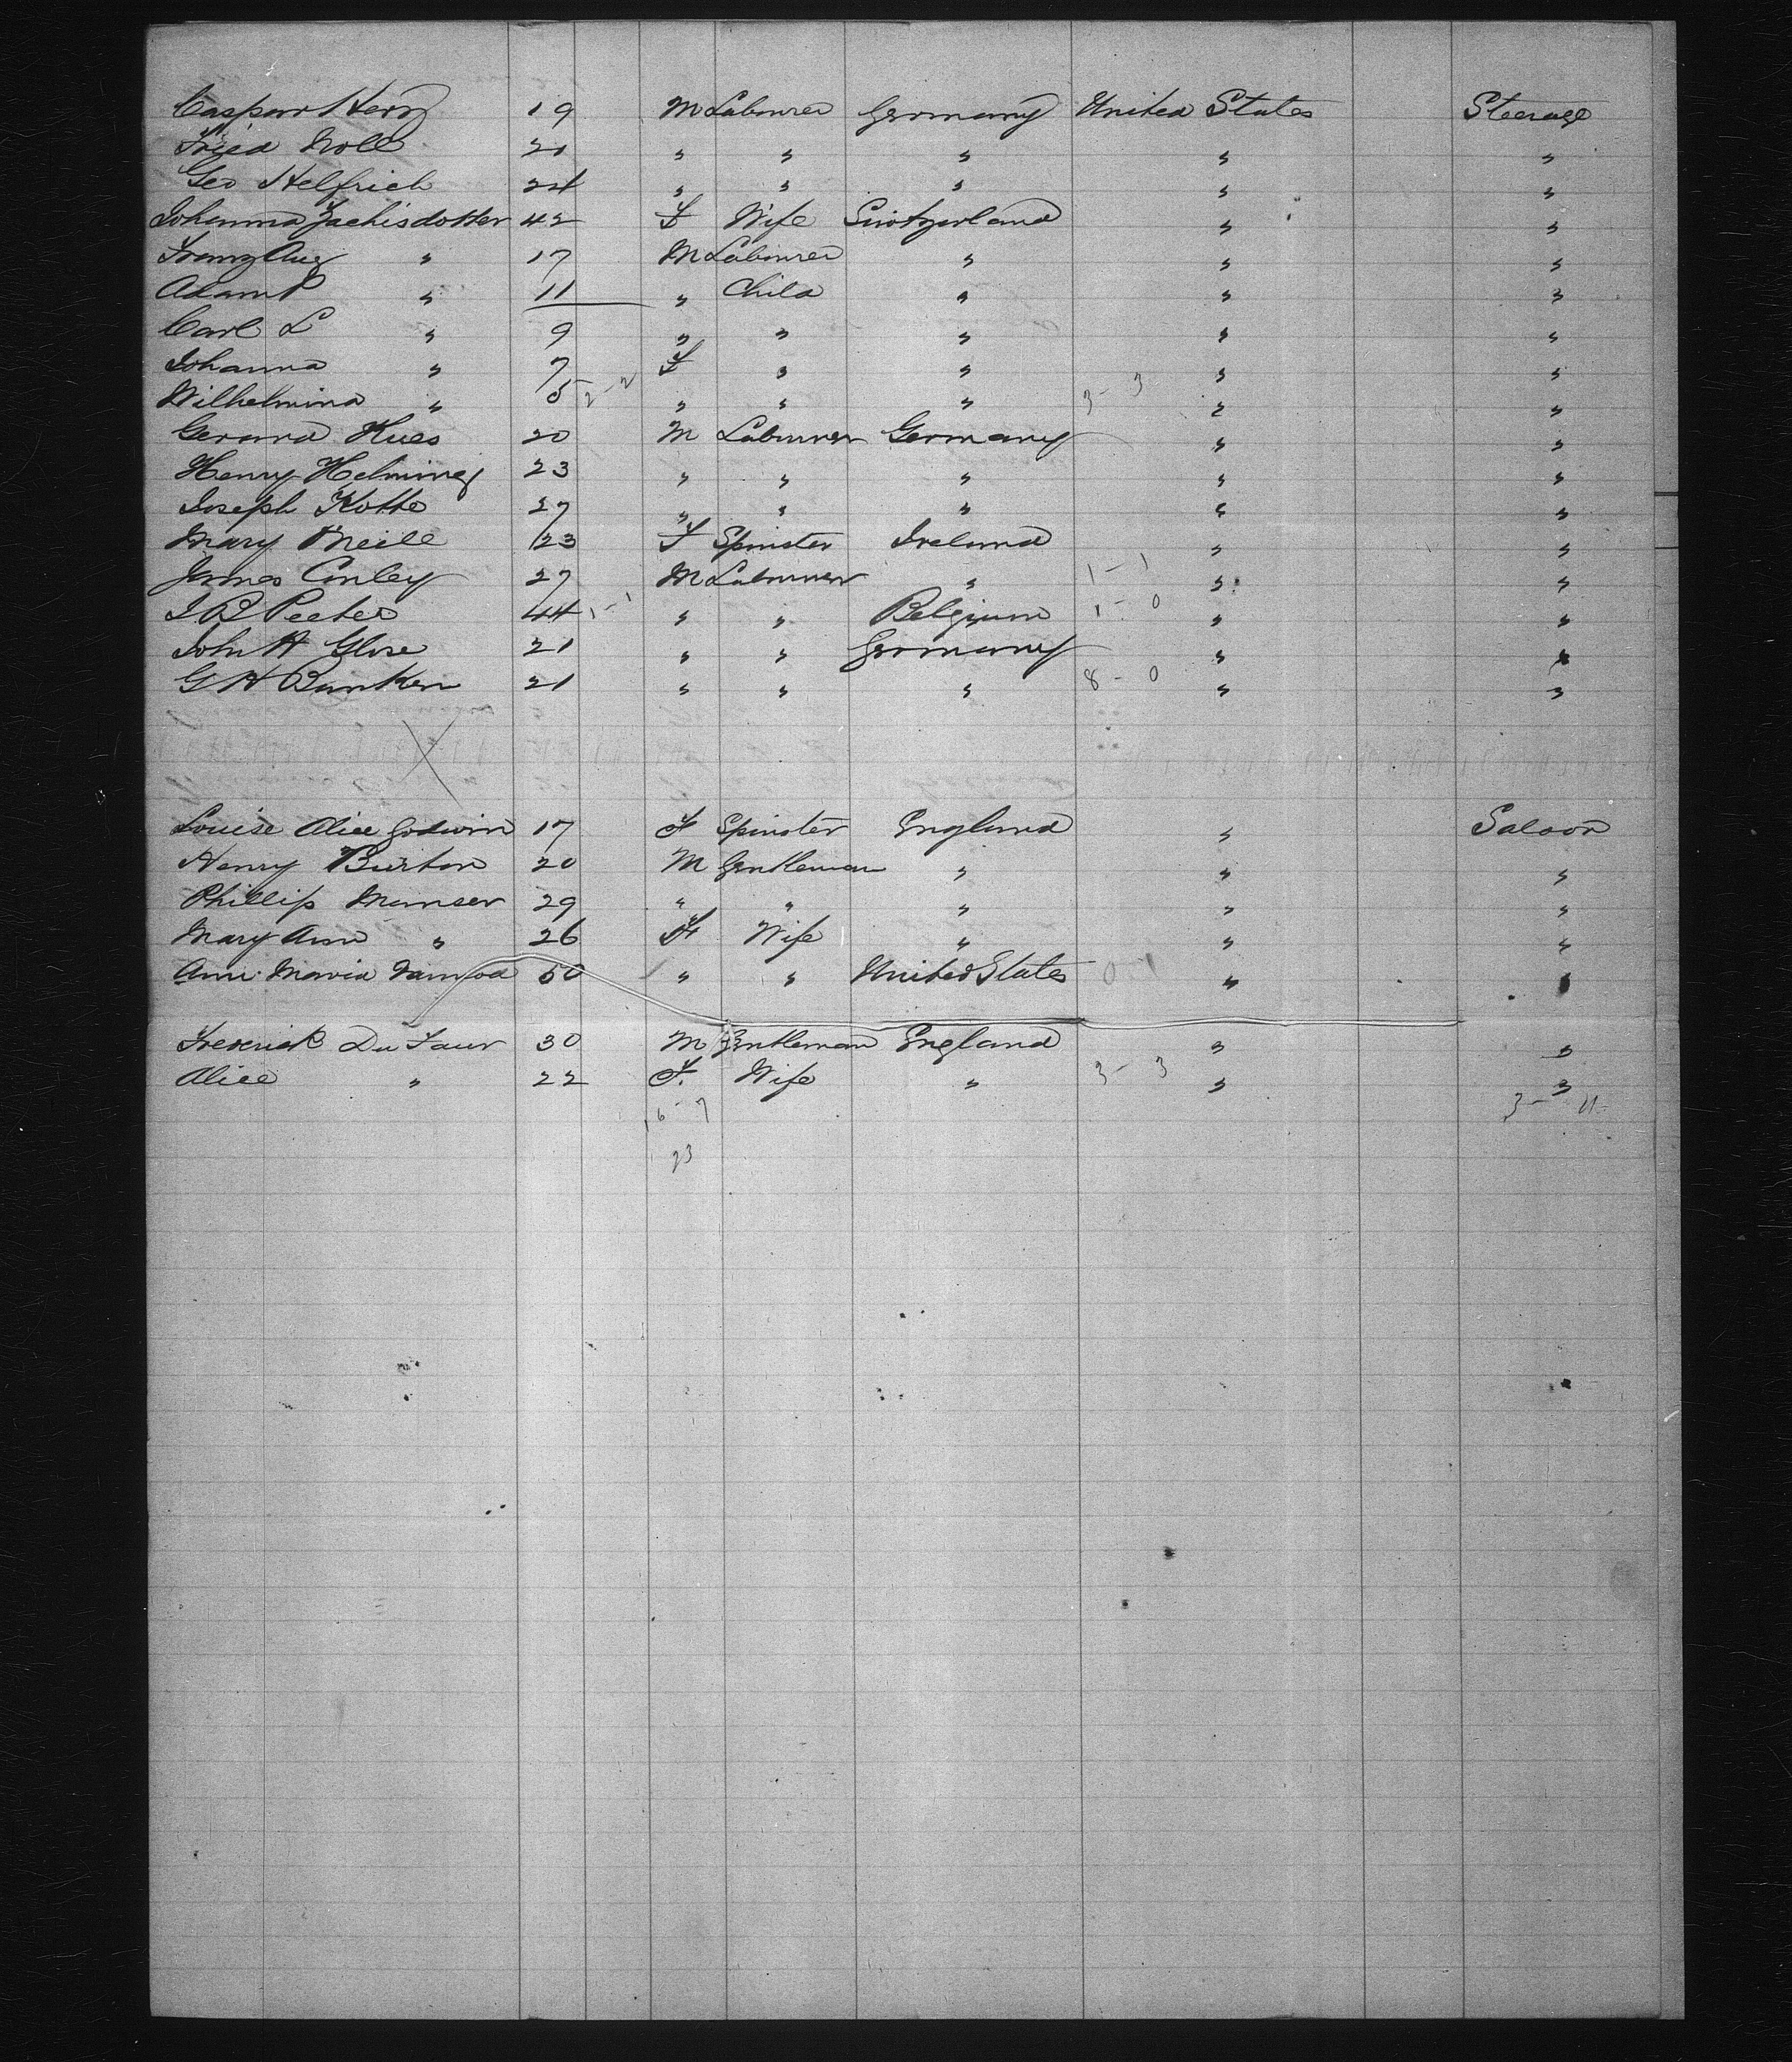 Caspar Herz 19 M Labourer Germany United States Steerage
Fried Noll 21 " " " " "
Geo Helfrich 24 " " " " "
Johanna Zachisdotter 42 F Wife Switzerland " "
Franz Aug " 17 M Labourer " " "
Adam " 11 " Child " " "
Carl L " 9 " " " " "
Johanna " 7 F " " " "
Wilhelmina " 5 2-2 " " " 3-3 " "
Gerard Kues 20 M Labourer Germany " "
Henry Helming 23 " " " " "
Joseph Kotte 27 " " " " "
Mary Neill 23 F Spinster Ireland " "
James Conley 27 M Labourer " 1-1 " "
J B Peeters 44 1-1 " " Belgium 1-0 " "
John H Glose 21 " " Germany " "
G H Bunken 21 " " " 8-0 " "
Louise Alice Godwin 17 F Spinster England " Saloon
Henry Burton 20 M Gentleman " " "
Phillip Munser 29 " " " " "
Mary Ann " 26 F Wife " " "
Ann Maria 50 " " United States 0-1 "
Frederick Du Faur 30 M Gentleman England " "
Alice " 22 F. Wife " 3-3 " "
16-7 3-4
23